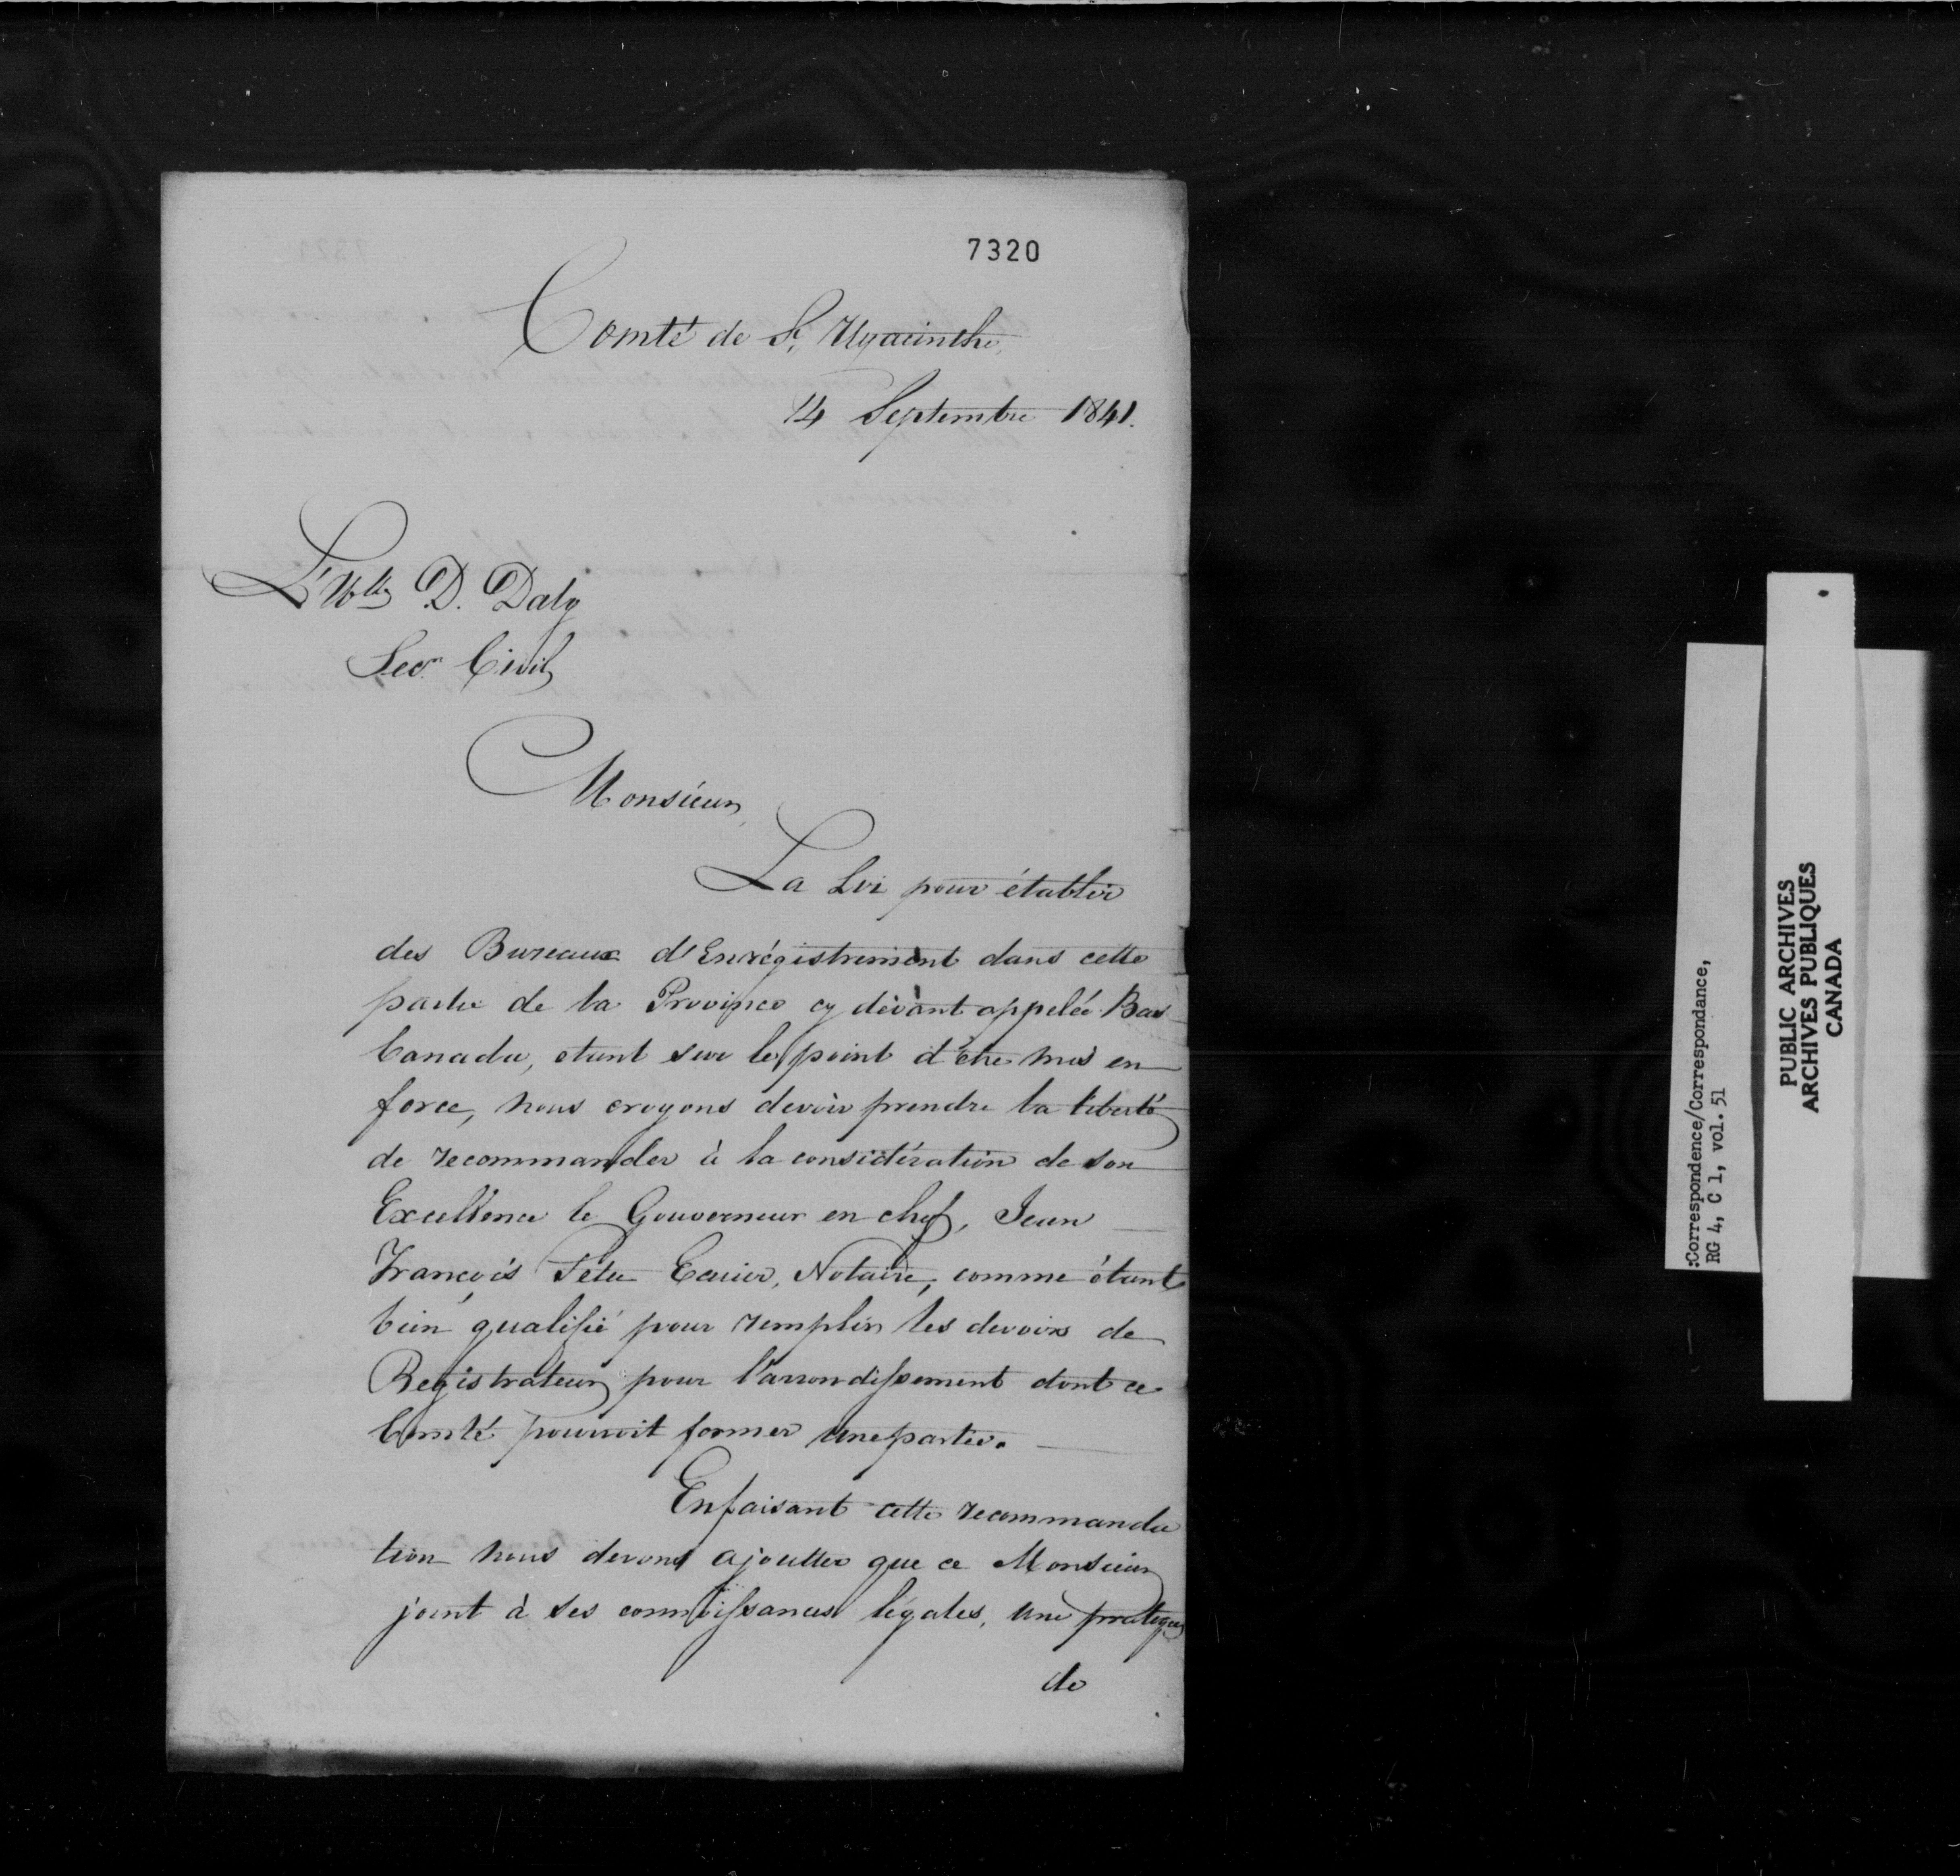 7320
Comté de St Hyacinthe,
14 Septembre 1841.
L'Hble D. Daly
Secr Civil
Monsieur,
La Loi pour établir
des Bureaux d'Enrégistrement dans cette
partie de la Province cy dévant appelée Bas
Canada, etant sur le point d'être mis en
force, nous croyons devoir prendre la liberté
de recommander à la considération de son
Excellence le Gouverneur en chef, Jean
François Têtu Ecuier, Notaire, comme étant
bien qualifié pour remplir les devoirs de
Registrateur pour l'arrondissement dont ce
Comté pourroit former une partie.
En faisant cette recommanda
tion nous devons ajoutter que ce Monsieur
joint à ses connoissances légales, une pratique
de
:Correspondence/Correspondance,
RG 4, C 1, vol. 51
PUBLIC ARCHIVES
ARCHIVES PUBLIQUES
CANADA